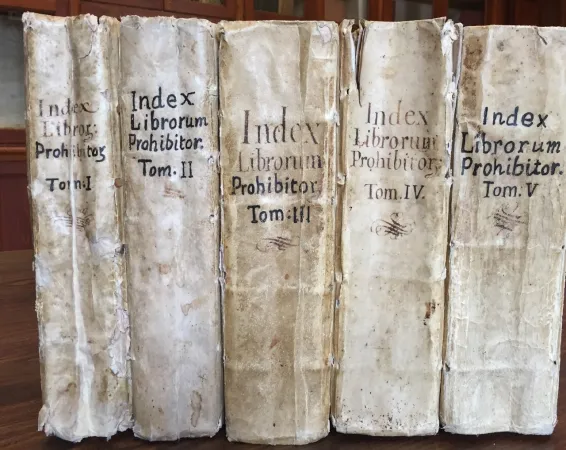 Index
Libror:
Prohibitoʒ
Tom. I
Index
Librorum
Prohibitor.
Tom. II
Index
Librorum
Prohibitor.
Tom: III
Index
Librorum
Prohibitor:
Tom. IV.
Index
Librorum
Prohibitor.
Tom. V